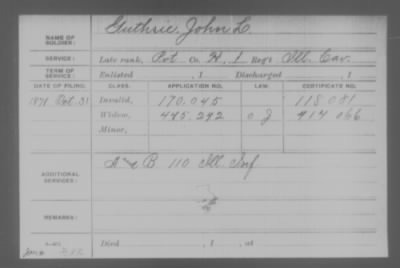 NAME OF SOLDIER: Guthrie, John L.
SERVICE: Late rank, Pvt Co. H, 1 Reg't Ill. Cav.
TERM OF SERVICE: Enlisted , 1 Discharged , 1
DATE OF FILING. CLASS. APPLICATION NO. LAW. CERTIFICATE NO.
1871 Oct. 31 Invalid, 170.045 118.081
Widow, 445.292 414.066
Minor,
ADDITIONAL SERVICES: B 110 Ill Inf
REMARKS:
Died , 1 , at